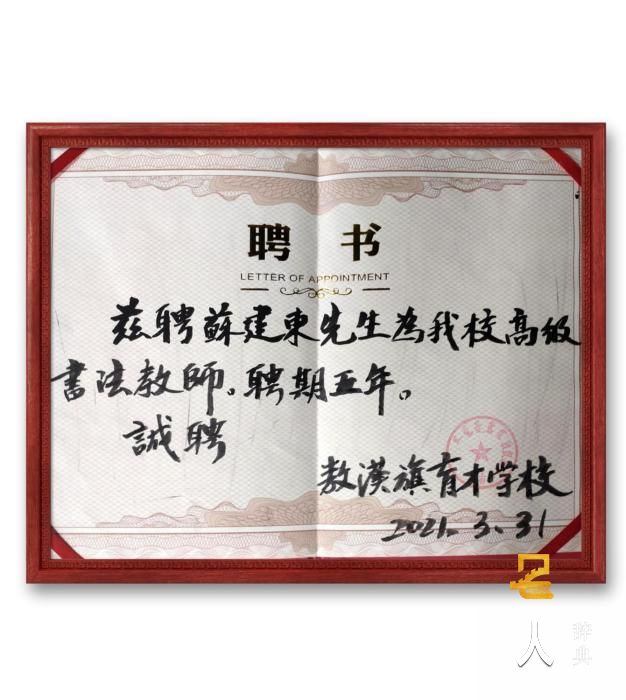 聘 书
LETTER OF APPOINTMENT
兹聘蘇建東先生為我校高级
書法教師。聘期五年。
誠聘
敖漢旗育才学校
2021.3.31
名
人
辞
典